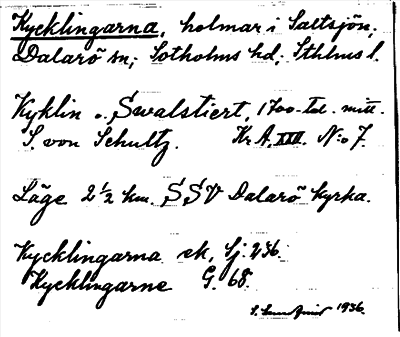 Kycklingarna, holmar i Saltsjön,
Dalarö sn; Sotholms hd; Sthlms l.
Kyklin o. Swalstiert, 1700-tal. mitt.
S. von Schultz. Kr A. XIII. No 7.
Läge 2 1/2 km. SSV Dalarö kyrka.
Kycklingarna ek, Sj. 236.
Kycklingarne G. 68.
1936.